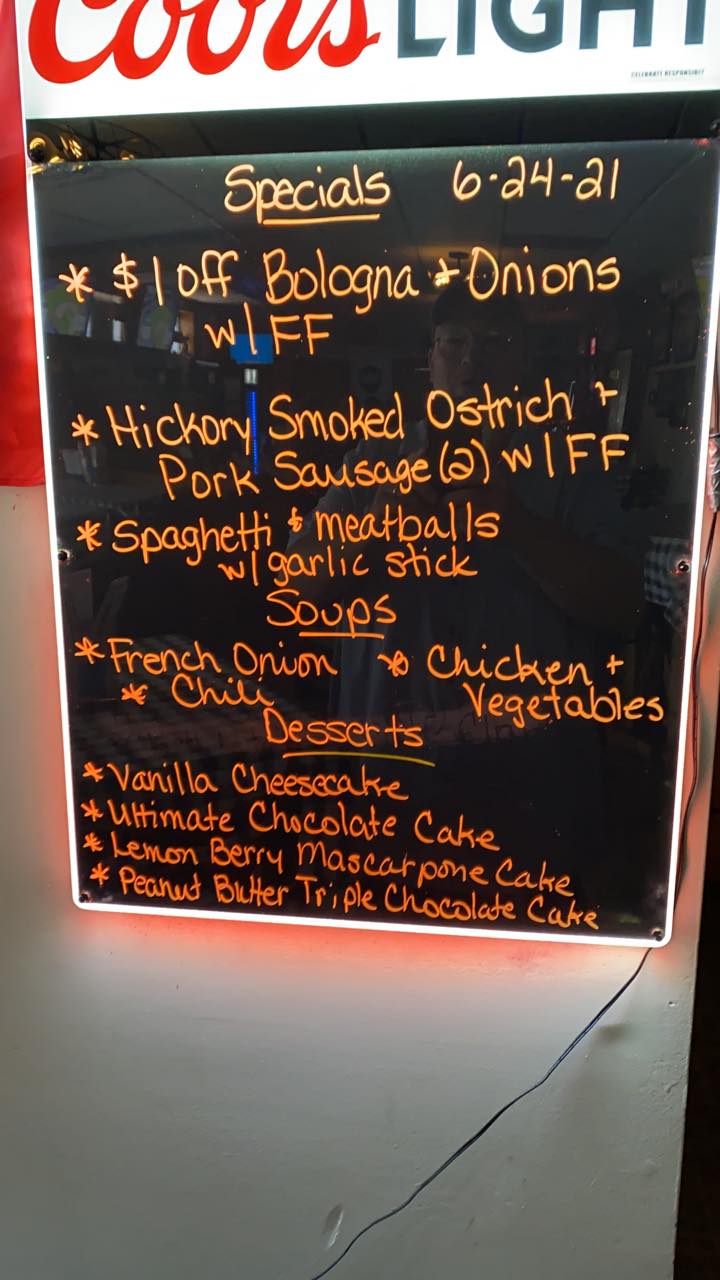 Coors LIGHT
CELEBRATE RESPONSIBLY
Specials 6-24-21
* $1 off Bologna + Onions
w/FF
* Hickory Smoked Ostrich +
Pork Sausage (2) w/FF
* Spaghetti & meatballs
w/garlic stick
Soups
* French Onion * Chicken +
* Chili Vegetables
Desserts
* Vanilla Cheesecake
* Ultimate Chocolate Cake
* Lemon Berry Mascarpone Cake
* Peanut Butter Triple Chocolate Cake